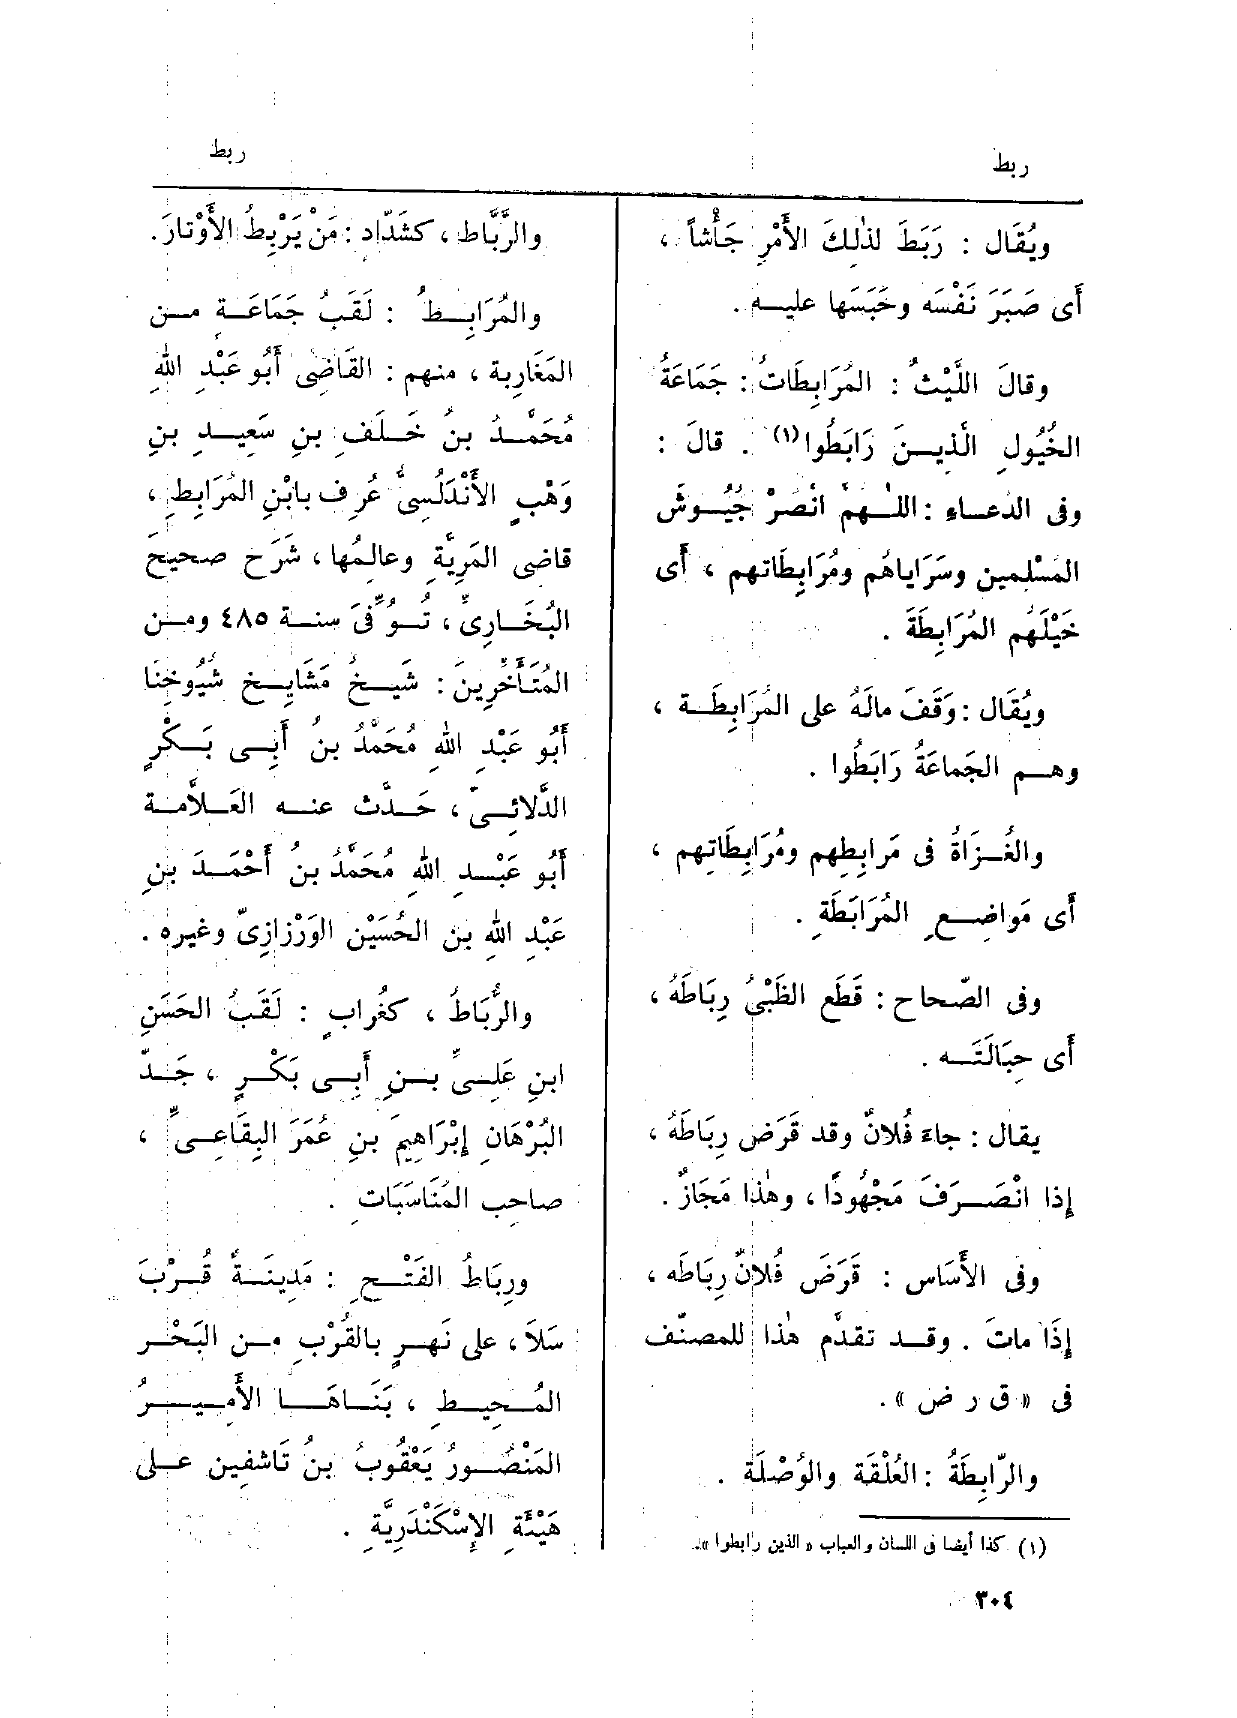 ربط
ربط
ويُقَال : رَبَطَ لذٰلِكَ الأَمْرِ جَأْشاً ،
أَى صَبَرَ نَفْسَه وحَبَسَها عليــه .
وقالَ اللَّيْثُ : المُرَابِطَاتُ : جَمَاعَةُ
الخُيُولِ الَّذيــنَ رَابَطُوا(١) . قالَ :
وفى الدعــاءِ : اللــهمّ انْصُرْ جُيُــوشَ
المُسْلِمين وسَرَاياهُم ومُرَابِطَاتهم ، أَى
خَيْلَهُم المُرَابِطَةَ .
ويُقَال : وَقَفَ مالَهُ على المُرَابِطَــة ،
وهــم الجَماعَةُ رَابَطُوا .
والغُــزاةُ فى مَرابِطِهم ومُرَابِطَاتِهم ،
أَى مَواضِــعِ المُرَابَطَةِ .
وفى الصّحاح : قَطَع الظَبْىُ رِبَاطَهُ ،
أَى حِبَالَتَــه .
يقال : جاءَ فُلانٌ وقد قَرَض رِبَاطَهُ ،
إذا انْصَــرَفَ مَجْهُودًا ، وهٰذا مَجَازٌ .
وفى الأَسَاس : قَرَضَ فُلانٌ رِبَاطَه ،
إِذَا ماتَ . وقــد تقدَّم هٰذا للمصنّف
فى « ق ر ض » .
والرّابِطَةُ : العُلْقَة والوُصْلَة .
(١) كذا أيضا فى اللسان والعباب « الذين رابطوا » .
٣٠٤
والرَّبَّاط ، كشَدّاد : مَنْ يَرْبِطُ الأَوْتارَ .
والمُرَابِــطُ : لَقَبُ جَمَاعَــةٍ مــن
المَغَارِبة ، منهم : القَاضِى أَبُو عَبْدِ اللهِ
مُحَمَّــدُ بنُ خَــلَفِ بنِ سَعِيــدِ بنِ
وَهْبٍ الأَنْدَلُسِىُّ عُرِف بابْنِ المُرَابِطِ ،
قاضِى المَرِيَّةِ وعالِمُها ، شَرَح صحيحَ
البُخَــارِىِّ ، تُــوُفِّىَ سنــة ٤٨٥ ومــن
المُتَأَخِّرِينَ : شَيــخُ مَشَايِــخِ شُيُوخِنَا
أَبُو عَبْدِ اللهِ مُحَمَّدُ بنُ أَبِــى بَــكْرٍ
الدِّلائِــىّ ، حَــدَّث عنــه العَــلاَّمــة
أَبُو عَبْــدِ اللهِ مُحَمَّدُ بنُ أَحْمَــدَ بنِ
عَبْدِ اللهِ بن الحُسَيْنِ الوَرْزازِىّ وغيره .
والرُّبَاطُ ، كغُرابٍ : لَقَبُ الحَسَنِ
ابنِ عَلِــىِّ بــنِ أَبِــى بَكْــرٍ ، جَــدّ
البُرْهَانِ إِبْرَاهِيمَ بنِ عُمَرَ البِقَاعِــىِّ ،
صاحب المُنَاسَبَات .
ورِبَاطُ الفَتْــحِ : مَدِينَــةٌ قُــرْبَ
سَلاَ ، على نَهــرٍ بالقُرْبِ مــن البَحْــر
المُــحِيــطِ ، بَنَــاهَــا الأَمِــيــرُ
المَنْصُــورُ يَعْقُوبُ بنُ تَاشفِين عــلى
هَيْئَةِ الإِسْكَنْدَرِيَّةِ .